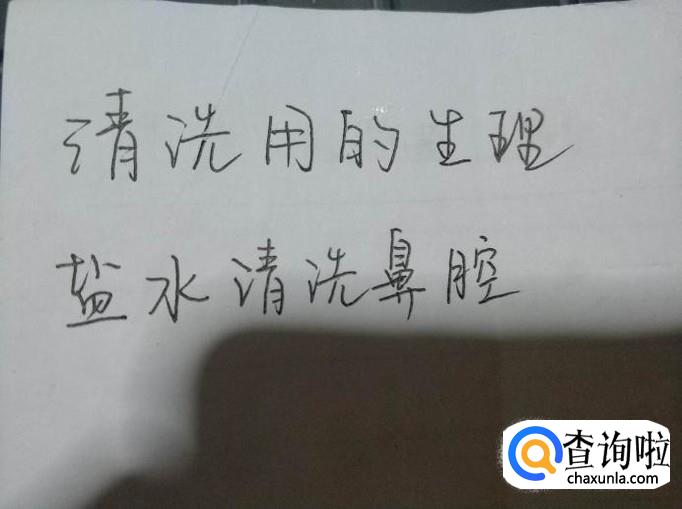 清洗用的生理
盐水清洗鼻腔
查询啦
chaxunla.com